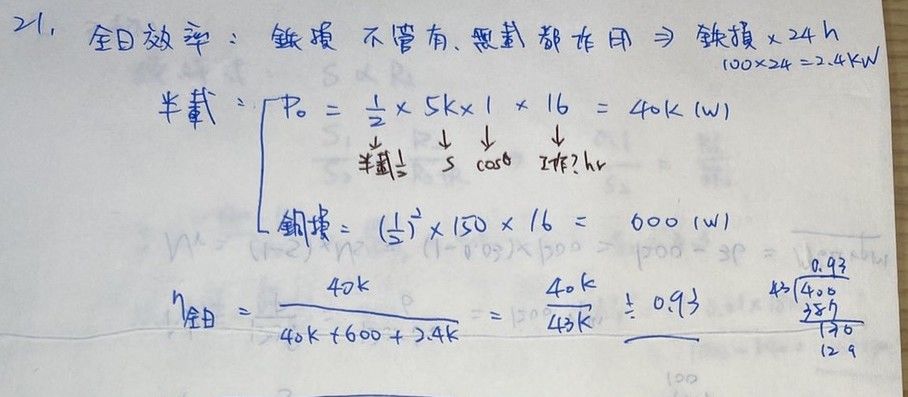 21. 全日效率: 鉄損 不管有、無載都作用 ⇒ 鉄損 × 24h
100×24 = 2.4KW
半載: P₀ = 1/2 × 5K × 1 × 16 = 40K (W)
↓ ↓ ↓ ↓
半載1/2 S cosθ 工作?hr
銅損 = (1/2)² × 150 × 16 = 600 (W)
η全日 = 40K / (40K + 600 + 2.4K) = 40K / 43K ≒ 0.93
0.93
43√400
387
130
129